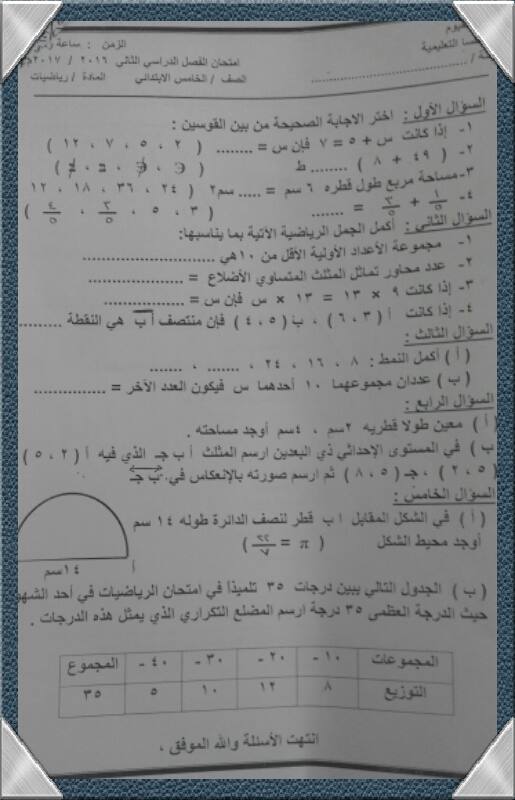 الزمن : ساعة
التعليمية
امتحان الفصل الدراسي الثاني ٢٠١٦ / ٢٠١٧م
الصف / الخامس الابتدائي المادة / رياضيات
السؤال الأول : اختر الاجابة الصحيحة من بين القوسين :
١- إذا كانت س + ٥ = ٧ فإن س = ........ ( ٢ ، ٥ ، ٧ ، ١٢ )
٢- ( ٤٩ + ٨ ) ........ ط ( ∋ ، ∌ ، ⊃ ، ⊅ )
٣- مساحة مربع طول قطره ٦ سم = ..... سم٢ ( ٢٤ ، ٣٦ ، ١٨ ، ١٢
٤- ١/٥ + ٣/٥ = ....... ( ٣ ، ٥ ، ٣/٥ ، ٤/٥ )
السؤال الثاني : أكمل الجمل الرياضية الآتية بما يناسبها:
١- مجموعة الأعداد الأولية الأقل من ١٠ هي ........................
٢- عدد محاور تماثل المثلث المتساوي الأضلاع = ..................
٣- إذا كانت ٩ × ١٣ = ١٣ × س فإن س = ................
٤- إذا كانت أ ( ٣ ، ٦ ) ، ب ( ٥ ، ٤ ) فإن منتصف أ ب هي النقطة ..........
السؤال الثالث :
( أ ) أكمل النمط : ٨ ، ١٦ ، ٢٤ ، ....... ، .......
( ب ) عددان مجموعهما ١٠ أحدهما س فيكون العدد الآخر = ..............
السؤال الرابع :
( أ ) معين طولا قطريه ٢سم ، ٤سم أوجد مساحته .
ب ) في المستوى الإحداثي ذي البعدين ارسم المثلث أ ب جـ الذي فيه أ ( ٢ ، ٥ )
( ٥ ، ٢ ) ، جـ ( ٥ ، ٨ ) ثم ارسم صورته بالإنعكاس في ب جـ
السؤال الخامس :
( أ ) في الشكل المقابل أ ب قطر لنصف الدائرة طوله ١٤ سم
أوجد محيط الشكل ( π = ٢٢/٧ )
أ
١٤سم
( ب ) الجدول التالي يبين درجات ٣٥ تلميذاً في امتحان الرياضيات في أحد الشهور
حيث الدرجة العظمى ٣٥ درجة ارسم المضلع التكراري الذي يمثل هذه الدرجات .
المجموعات ١٠ - ٢٠ - ٣٠ - ٤٠ - المجموع
التوزيع ٨ ١٢ ١٠ ٥ ٣٥
انتهت الأسئلة والله الموفق ،